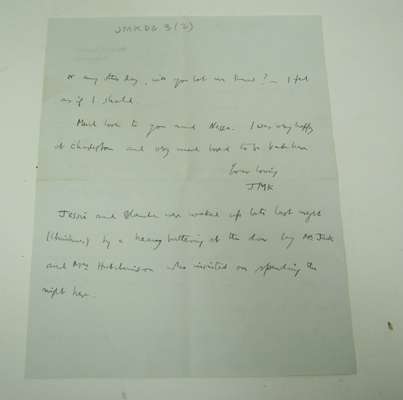 JMKDG 3(2)
or any other day, will you let me know? – I feel
as if I should.
Much love to you and Nessa. I was very happy
at Charleston and very much loved to be back here
Ever loving
JMK
Jessie and Blanche were waked up late last night
by a heavy battering at the door by
and Hutchinson who insisted on spending the
night here.